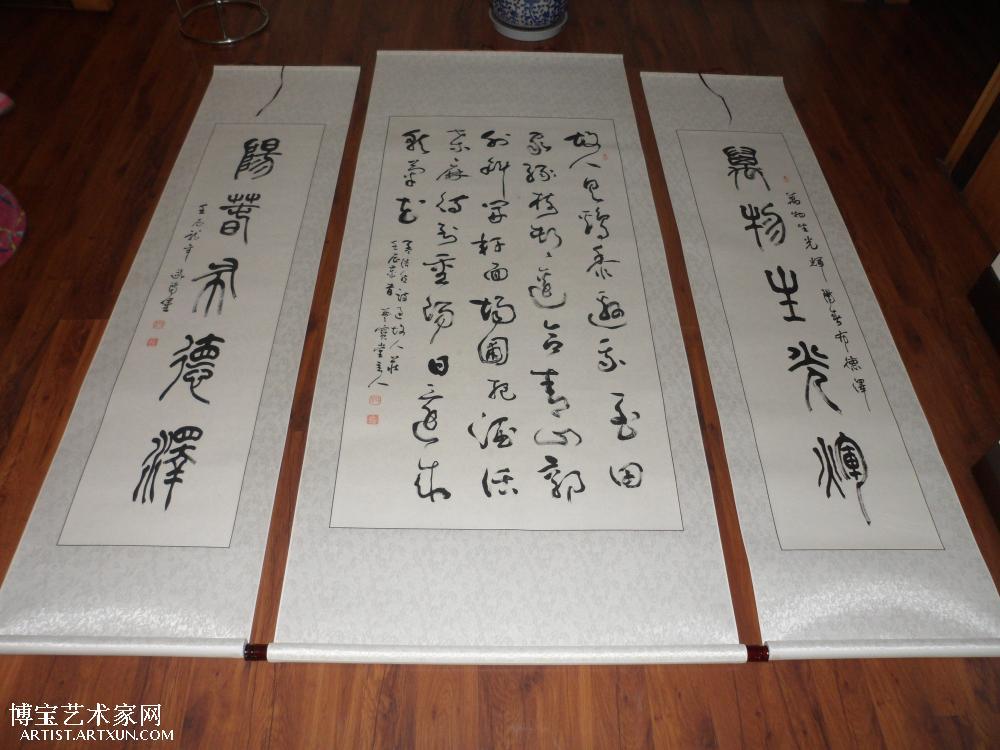 萬物生光輝
萬物生光輝 陽春布德澤
故人具鷄黍邀我至田
家綠樹村邊合青山郭
外斜開軒面場圃把酒話
桑麻待到重陽日還來
就菊花
孟浩然詩過故人莊
壬辰 堂主人
陽春布德澤
壬辰龍年
博宝艺术家网
ARTIST.ARTXUN.COM